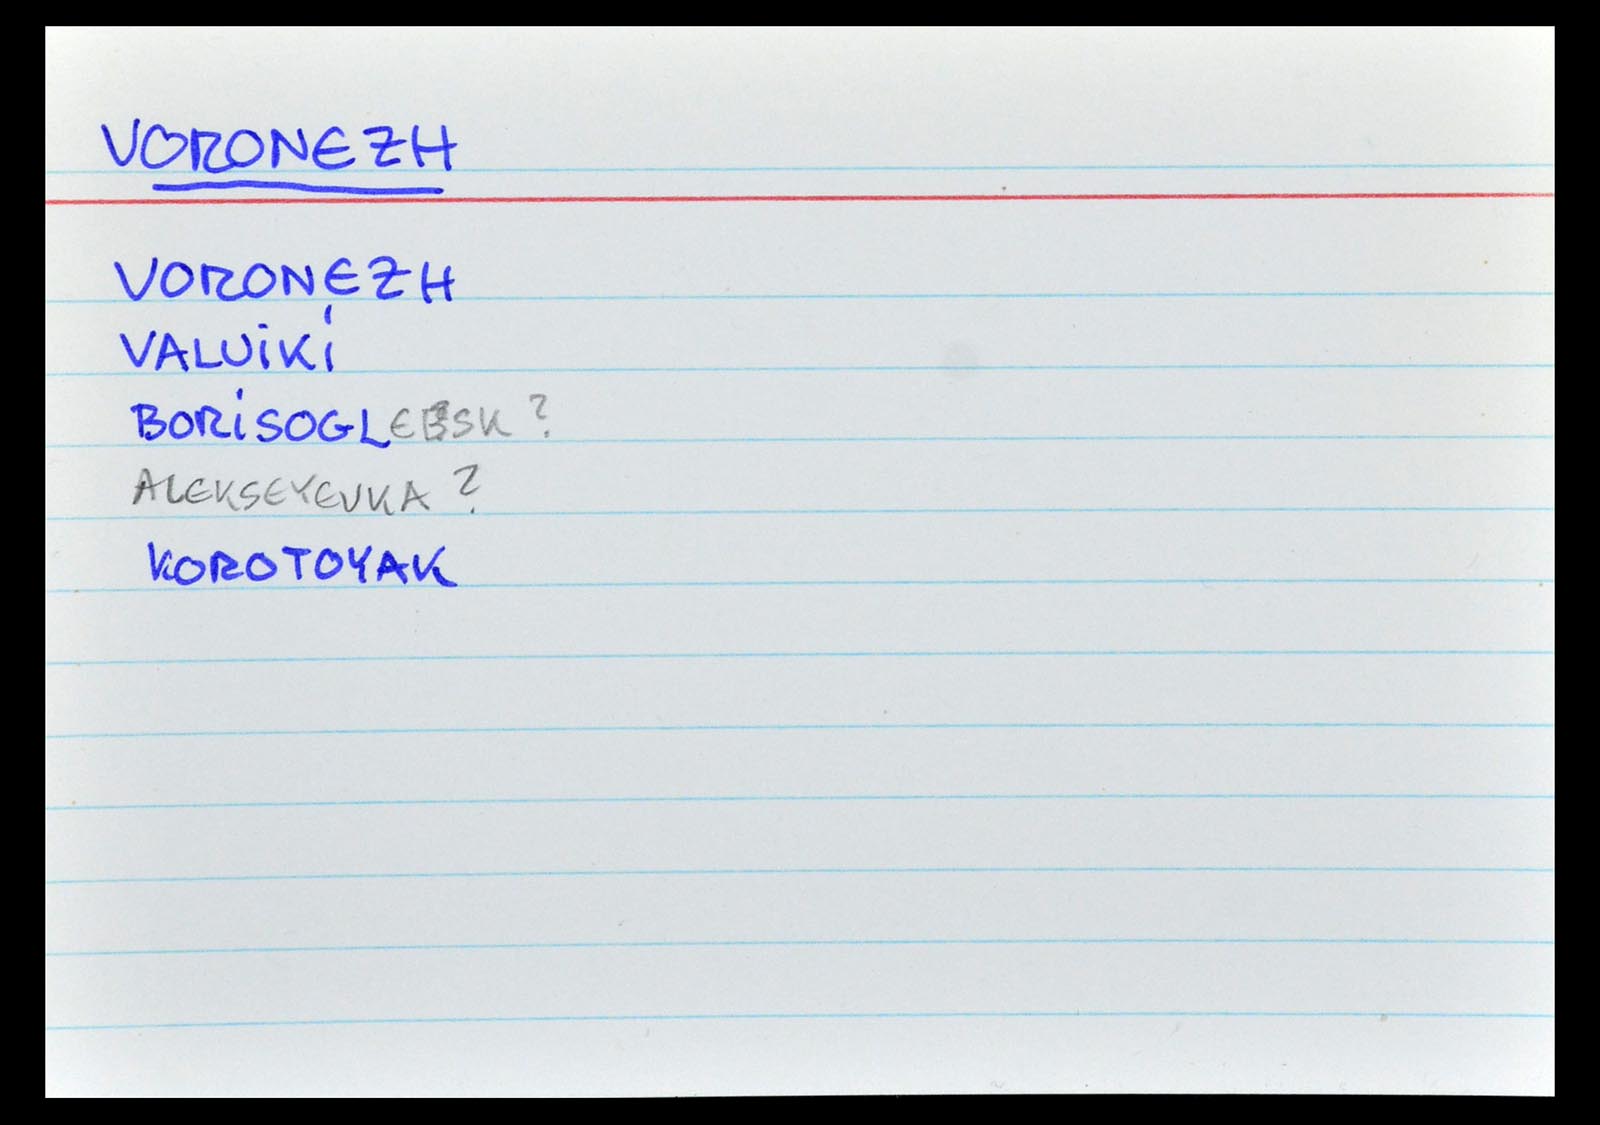 VORONEZH
VORONEZH
VALUIKI
BORISOGLEBSK ?
ALEKSEYEVKA ?
KOROTOYAK